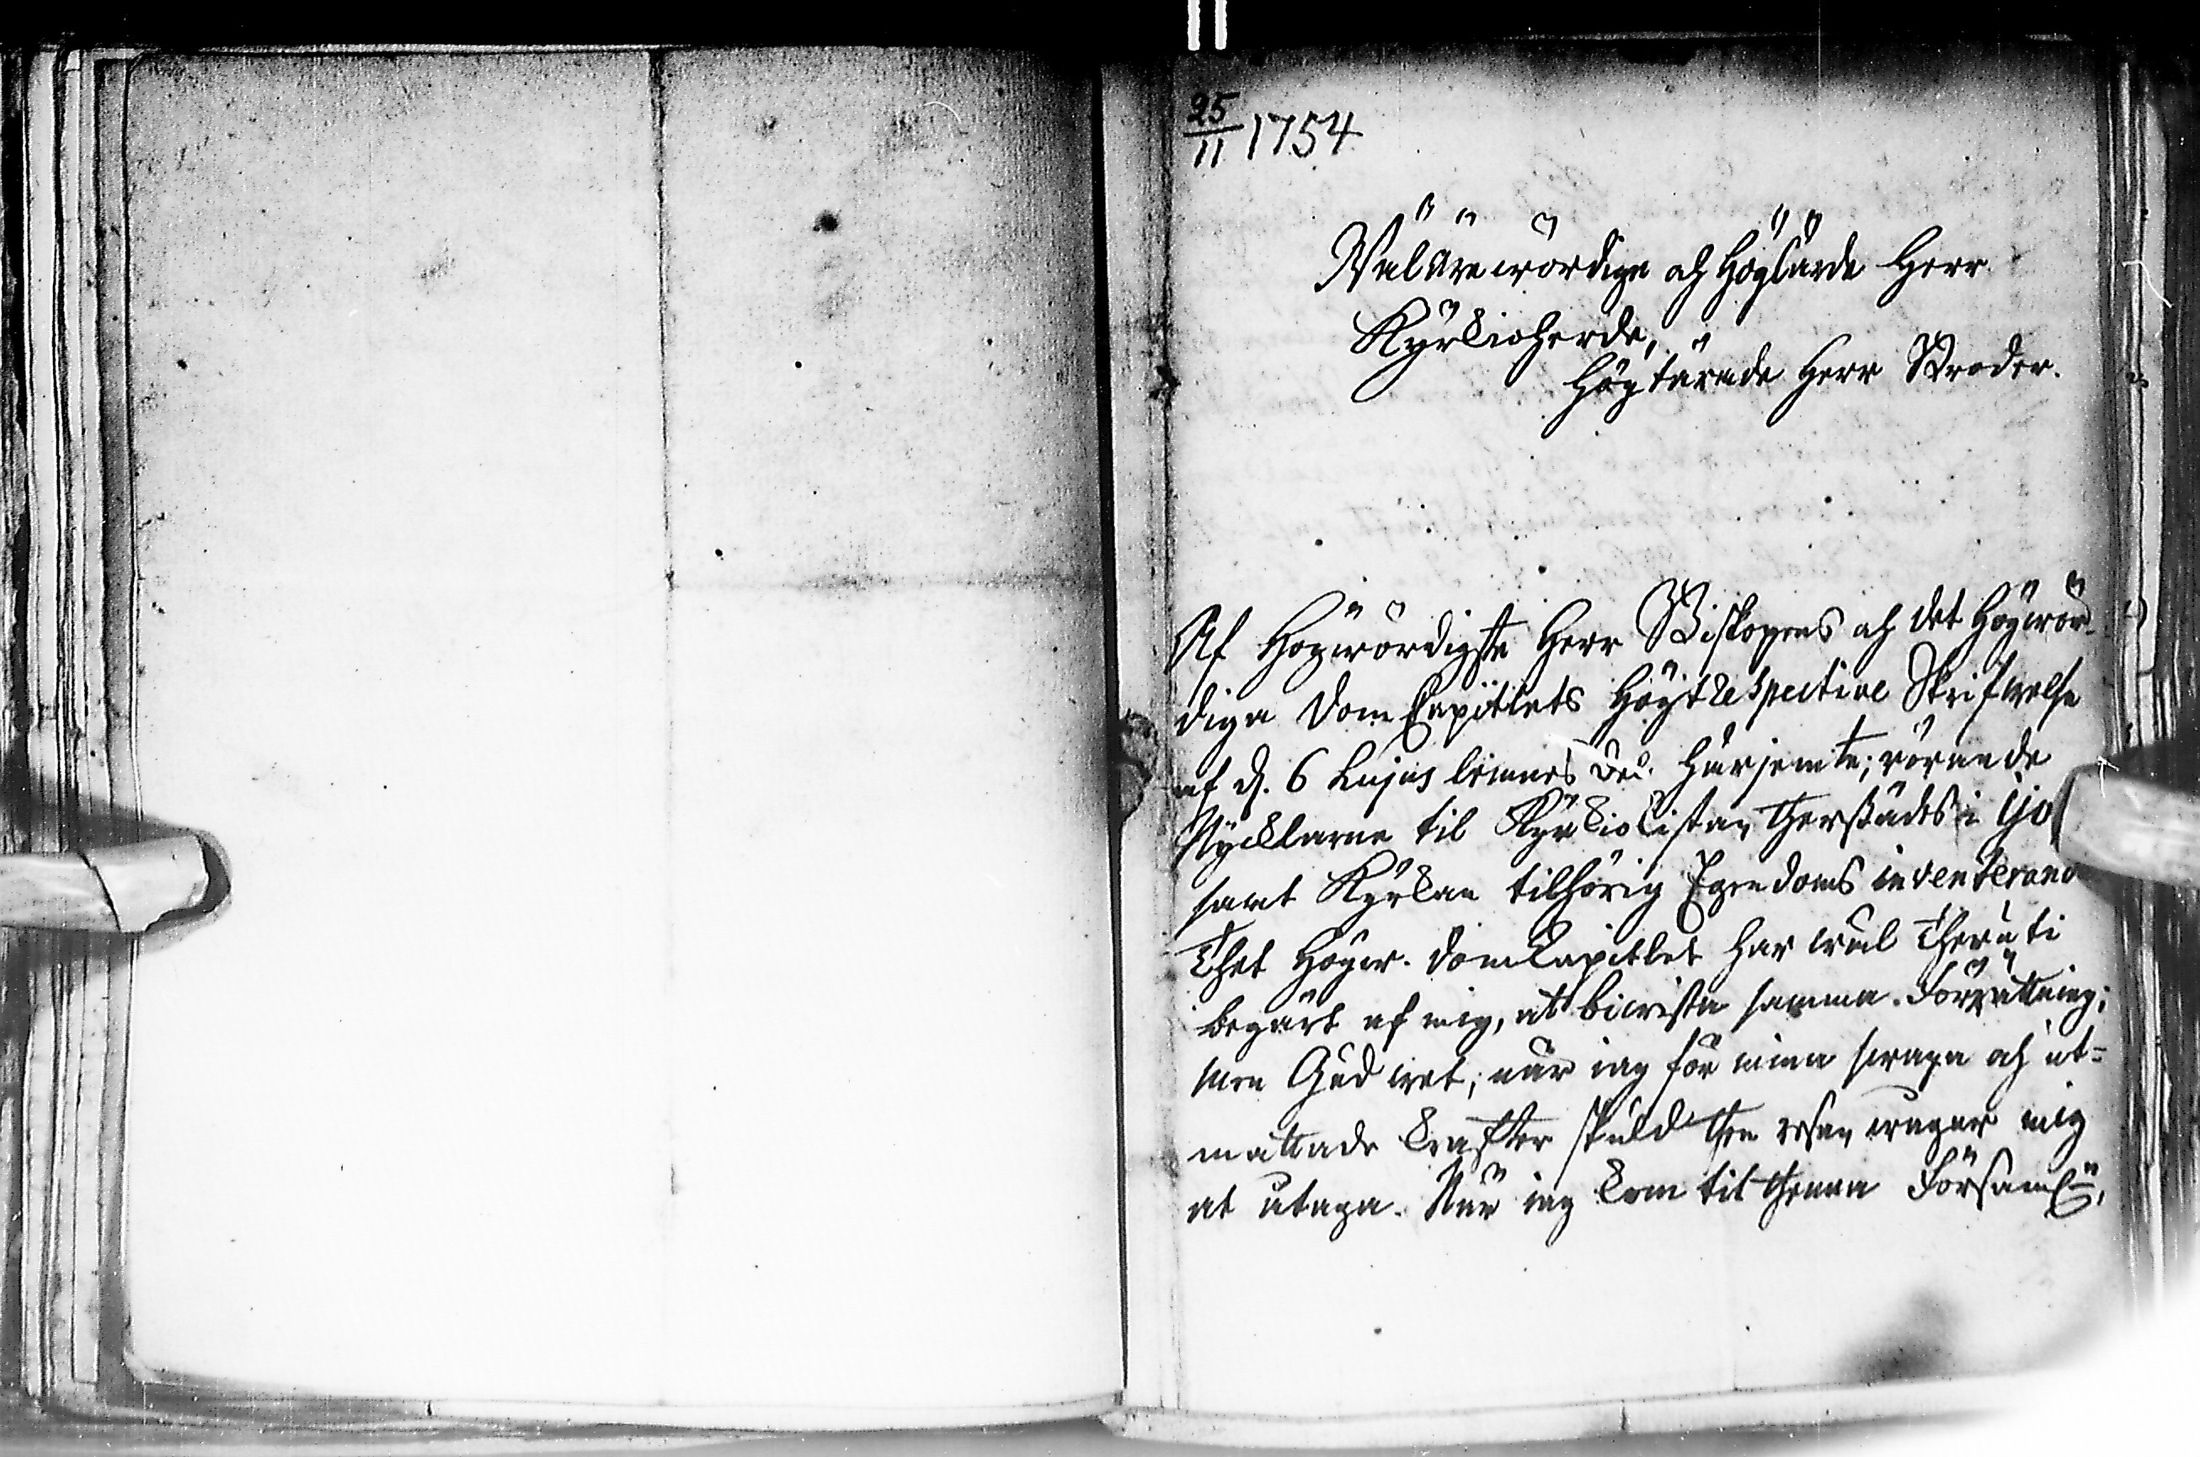 25/11 1754
Wäl ärewördige och Höglärde Herr
Kyrkioherde,
Högtärade Herr Broder.
Af Högwördigste Herr Biskopens och det Högwör-
diga Dom Capitlets Högt respective Skrifwelse
af d. 6 hujus lemnes Härjemte; rörande
Nycklarne til Kyrkiokistan therstädes i
samt Kyrkan tilhörig Egendoms inventerand
Thet Högw. DomCapitlet har wäl theruti
begärt af mig, at biwista samma Förrättning;
men Gud wet, när iag för mina swaga och ut-
mattade Krafter skuld then resan wågar mig
at utaga. När iag kom til thenna Församl:,